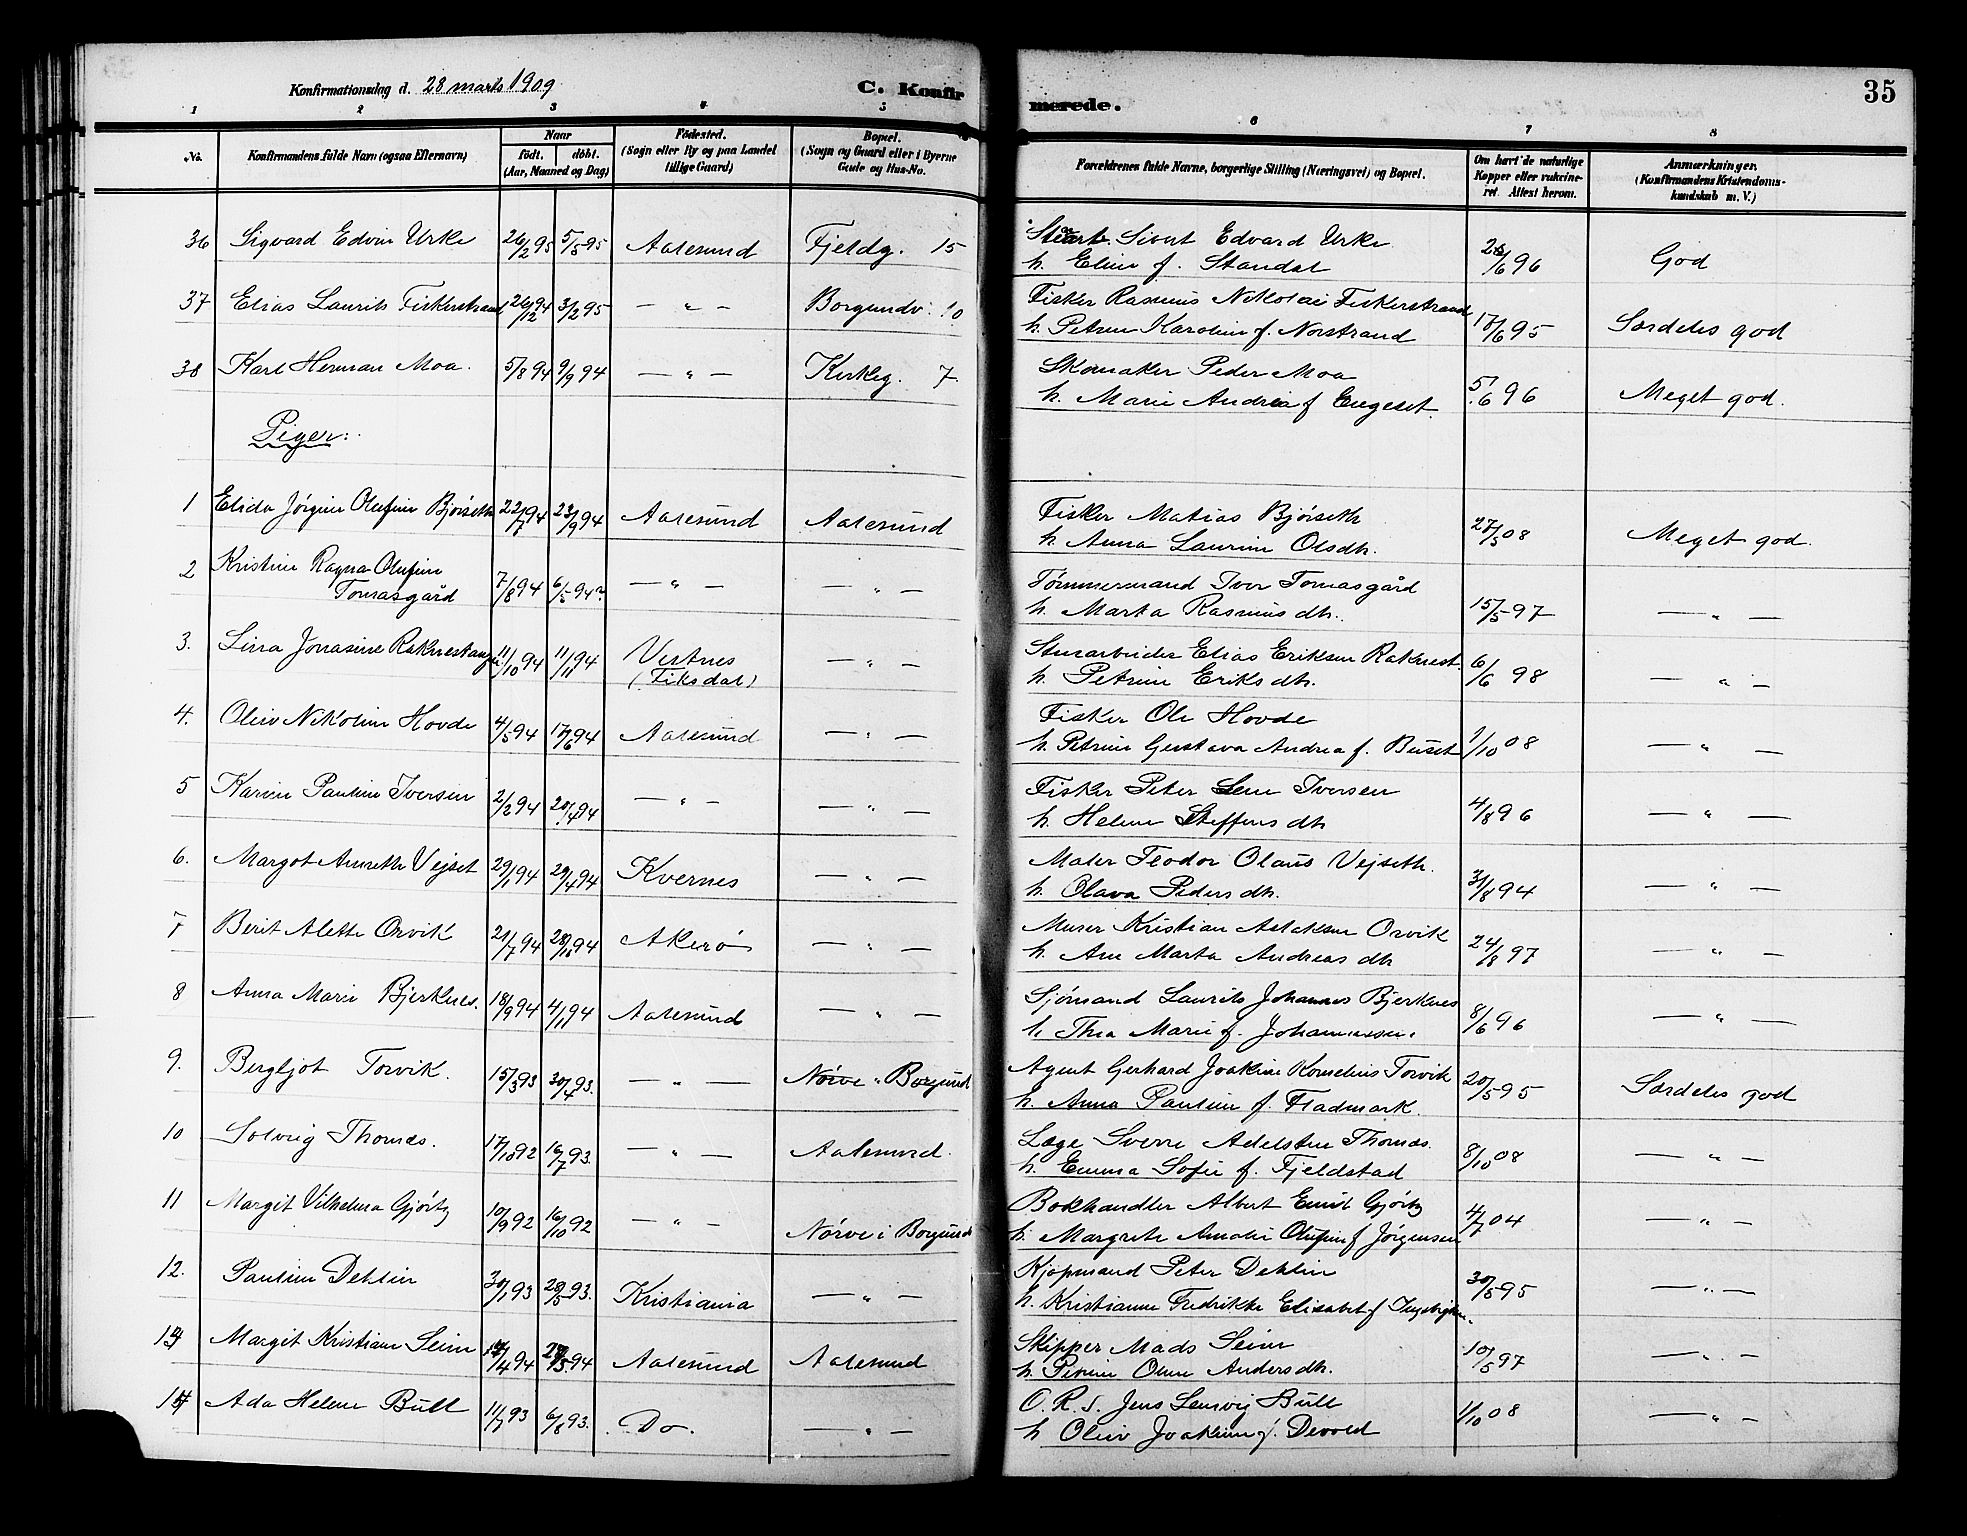 Konfirmationsdag d. 28 marts 1909
C. Konfirmerede.
35
1 2 3 4 5 6 7 8
No.
Konfirmandens fulde Navn (ogsaa Efternavn)
Naar
født. døbt.
(Aar, Maaned og Dag)
Fødested.
(Sogn eller By og paa Landet
tillige Gaard)
Bopæl.
(Sogn og Gaard eller i Byerne
Gade og Hus-No.
Forældrenes fulde Navne, borgerlige Stilling (Næringsvei) og Bopæl.
Om havt de naturlige
Kopper eller vakcine-
ret. Attest herom.
Anmærkninger.
(Konfirmandens Kristendoms-
kundskab m. V.)
36 Sigvard Edvin Urke 26/2 95 5/5 95 Aalesund Fjeldg. 15 Sivert Edvard Urke
h. Eline f. Standal /6 96 God
37 Elias Laurits Fiskerstrand 26/12 94 3/2 95 — " — Borgundv. 10 Fisker Rasmus Nikolai Fiskerstrand
h. Petrine Karoline f. Norstrand 17/6 95 Særdeles god
38 Karl Herman Moa. 5/8 94 9/9 94 — " — Kirkeg. 7 Skomaker Peder Moa
h. Marie Andrea f Engeset. 5/6 96 Meget god.
Piger:
1 Elida Jørgine Olufine Bjørseth 22/7 94 23/9 94 Aalesund Aalesund Fisker Matias Bjørseth
h. Anna Laurine Olsdh. 27/5 08 Meget god.
2 Kristine Ragna Olufine
Tomasgård 7/8 94 6/5 94? — " — — " — Tømmermand Iver Tomasgård
h. Marta Rasmusdh. 15/5 97 — " —
3. Lina Jonasine Raknestangen 11/10 94 11/11 94 Vestnes
(Fiksdal) — " — Stenarbeider Elias Eriksen Raknest.
h. Petrine Eriksdh. 6/6 98 — " —
4. Oliv Nikoline Hovde 4/5 94 17/6 94 Aalesund — " — Fisker Ole Hovde
h. Petrine Gustava Andrea f. Buset /10 08 — " —
5 Karine Pauline Iversen 2/2 94 20/4 94 — " — — " — Fisker Peter Lene Iversen
h. Helene Steffensdh 4/8 96 — " —
6. Margot Annette Vejset 29/1 94 29/4 94 Kvernes — " — Maler Teodor Olaus Vejseth.
h. Olava Pedersdh. 31/8 94 — " —
7 Berit Alette Orvik 21/7 94 28/10 94 Akerø — " — Murer Kristian Orvik
h. Ane Marta Andreasdh 24/8 97 — " —
8 Anna Marie Bjerknes. 18/9 94 4/11 94 Aalesund — " — Sjømand Laurits Johannes Bjerknes
h. Thea Marie f. Johannessen. 8/6 96 — " —
9. Bergljot Torvik. 15/3 93 30/4 93. — " — Nørve i Borgund Agent Gerhard Joakim Kornelius Torvik
h. Anna Pauline f. Fladmark. 20/5 95 Særdeles god
10 Solveig Thomæs. 17/10 92 16/7 93. — " — Aalesund. Læge Sverre Adelsten Thomæs.
h. Emma Sofie f. Fjeldstad 8/10 08 — " —
11 Margit Vilhelma Gjørtz 10/9 92 16/10 92 — " — Nørve i Borgund Bokhandler Albert Emil Gjørtz
h. Margrete Amalie Olufine f Jørgensen 4/7 04 — " —
12. Pauline Dehlin 30/1 93 28/5 93. Kristiania — " — Kjøpmand Peter Dehlin
h. Kristianne Fredrikke Elisabet f 30/5 95 — " —
13 Margit Kristiane Seim /4 94 27/5 94 Aalesund Aalesund Skipper Mads Seim
h. Oline Andersdh. 10/5 97 — " —
14 Ada Helene Bull 11/7 93 6/8 93. Do. — " — O.R.S. Jens Bull
h Oliv Joakime f. Devold 1/10 08 — " —